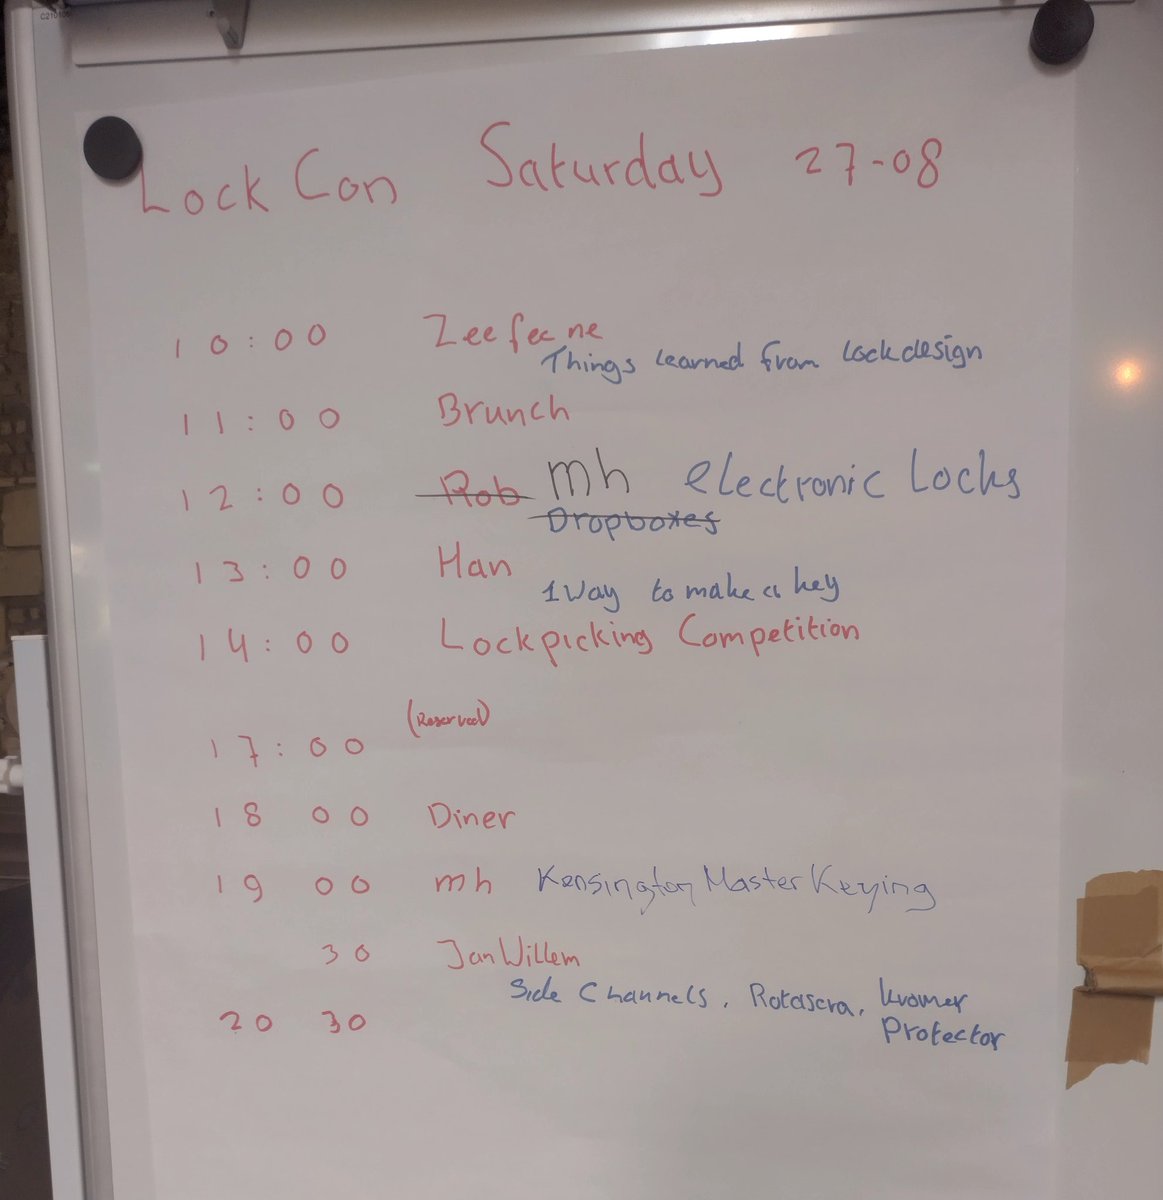 LockCon Saturday 27-08
10:00 Zeefeene
Things learned from lockdesign
11:00 Brunch
12:00 Rob mh electronic Locks
Dropboxes
13:00 Han
1 Way to make a key
14:00 Lockpicking Competition
(Reserved)
17:00
18 00 Diner
19 00 mh Kensington Master Keying
30 JanWillem
Side Channels, Rotasera, kromer
20 30 Protector